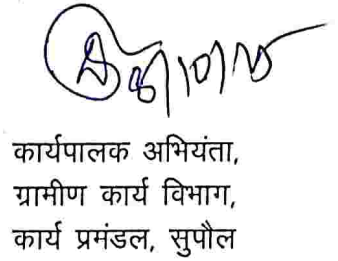 कार्यपालक अभियंता,
ग्रामीण कार्य विभाग,
कार्य प्रमंडल, सुपौल